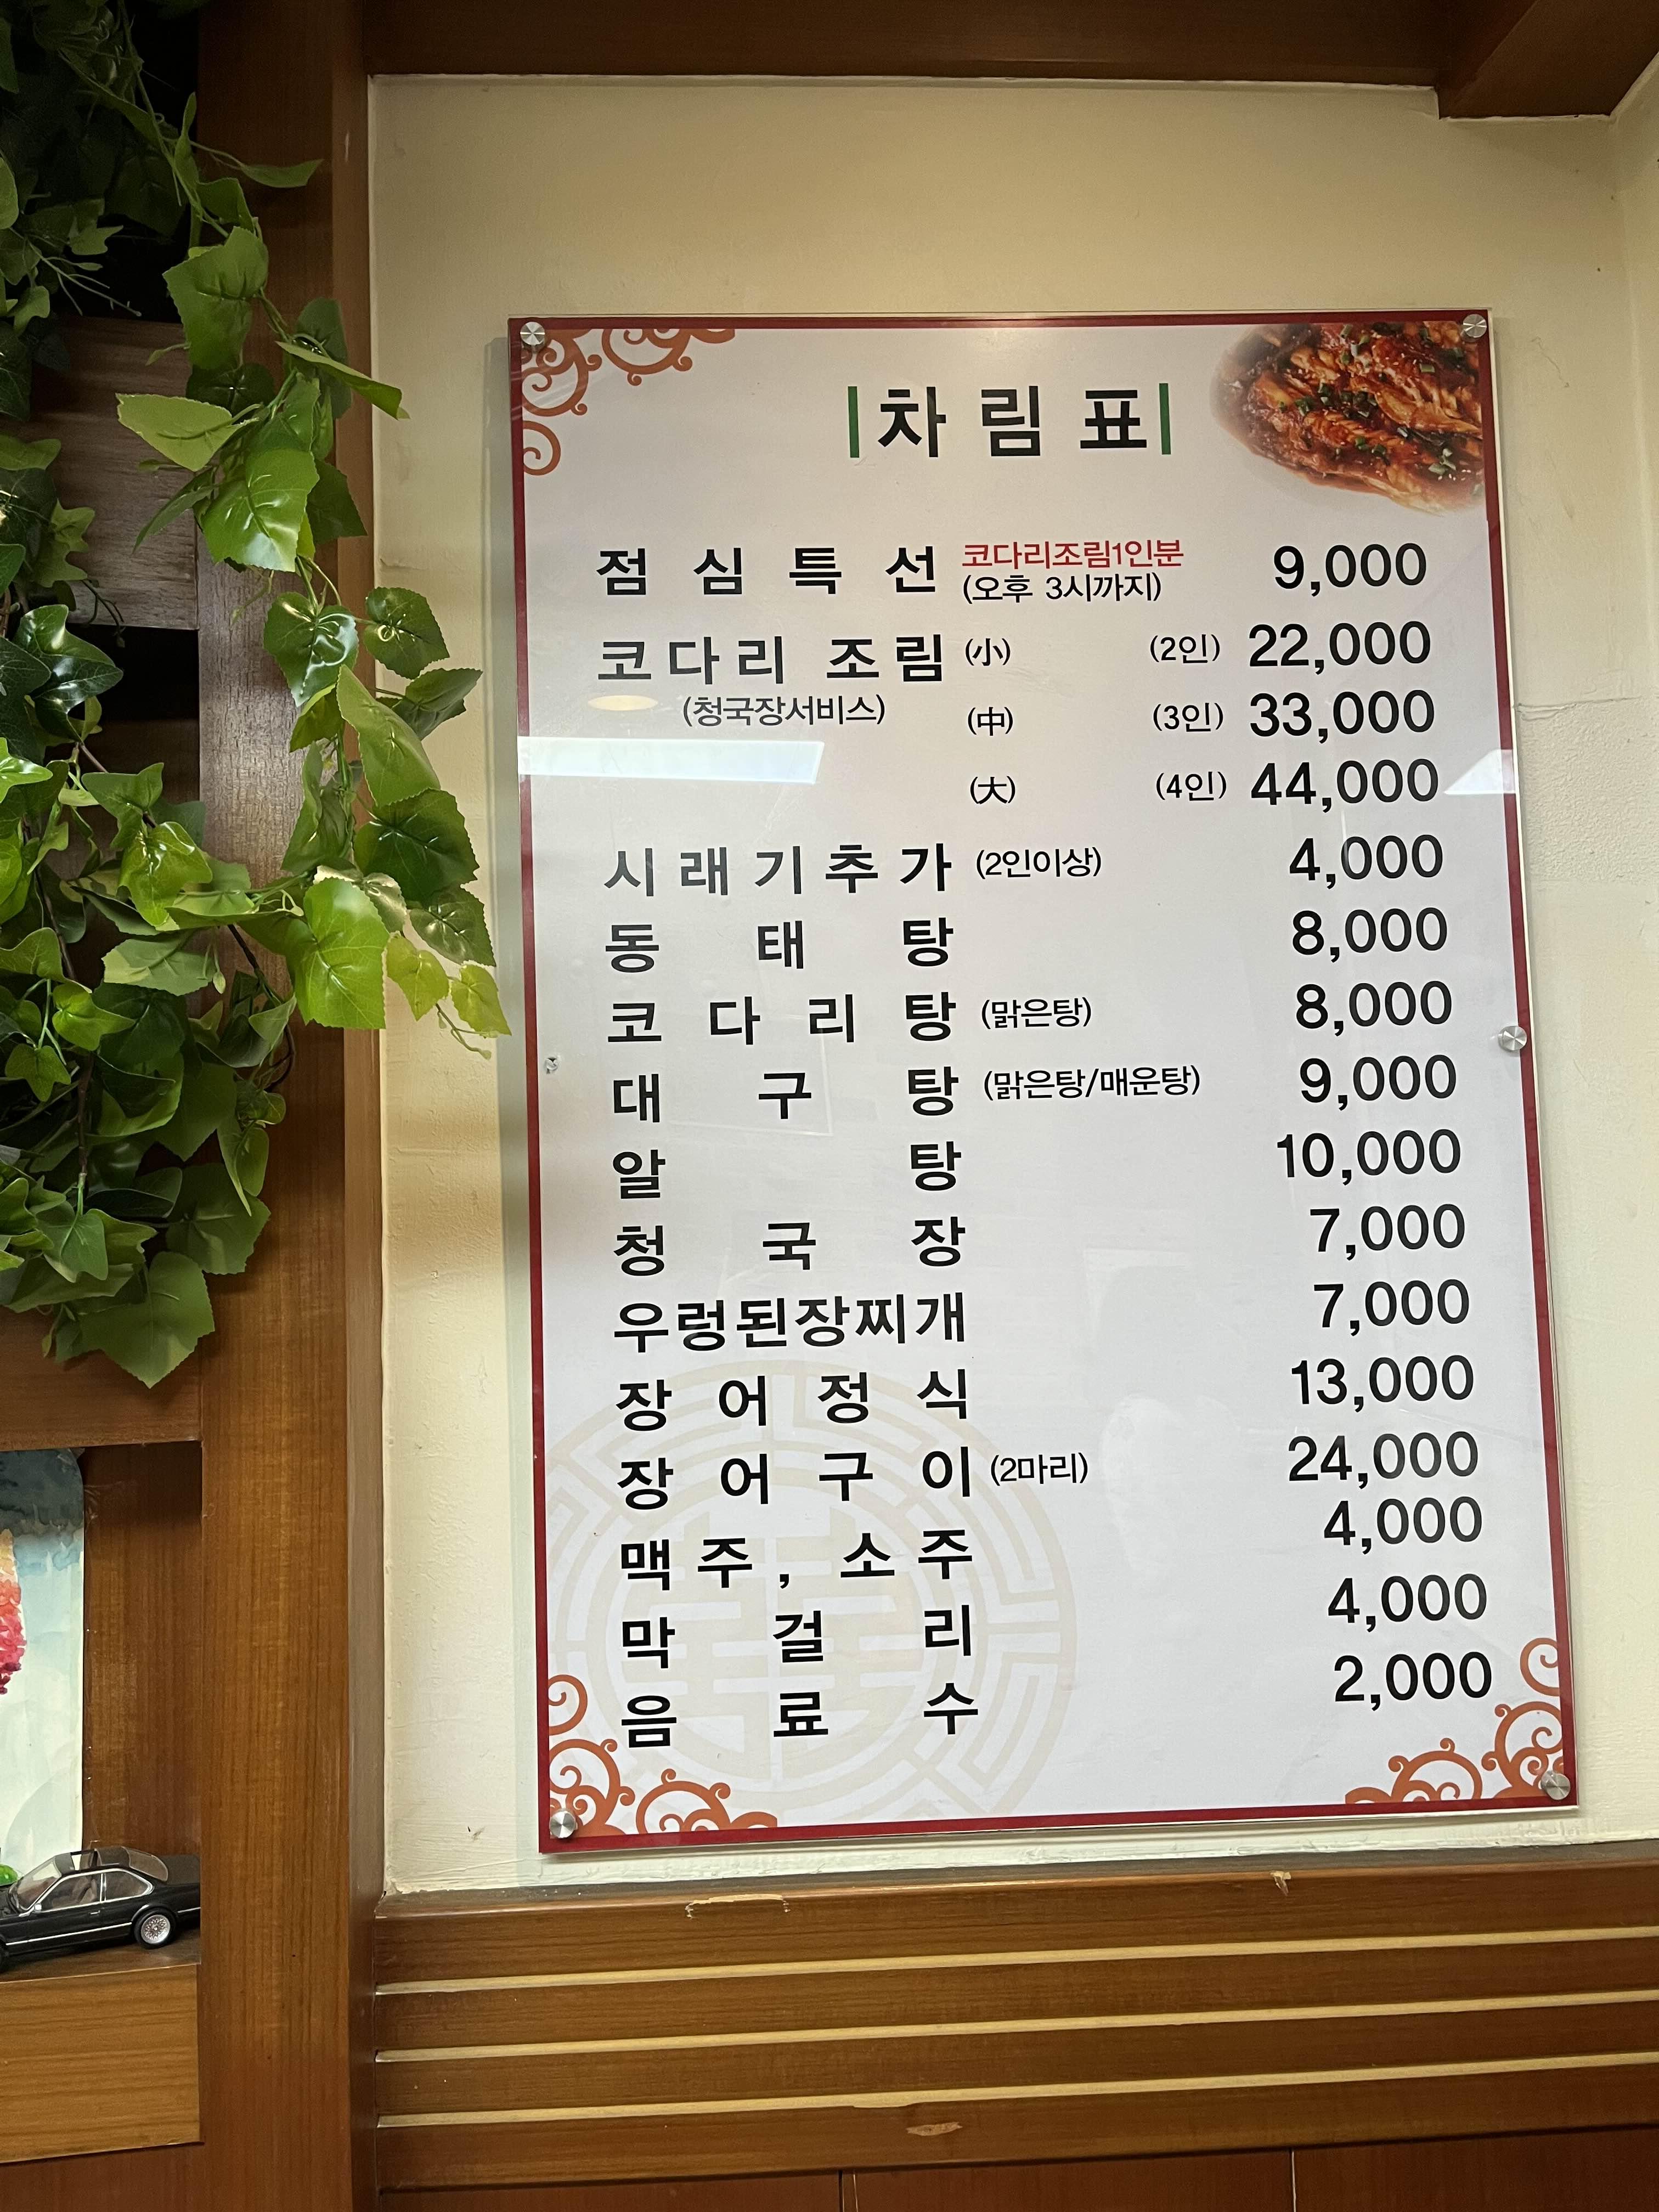 차림표
점심특선 코다리조림1인분 9,000
(오후 3시까지)
코다리 조림 (小) (2인) 22,000
(청국장서비스) (中) (3인) 33,000
(大) (4인) 44,000
시래기추가 (2인이상) 4,000
동태탕 8,000
코다리탕 (맑은탕) 8,000
대구탕 (맑은탕/매운탕) 9,000
알탕 10,000
청국장 7,000
우렁된장찌개 7,000
장어정식 13,000
장어구이 (2마리) 24,000
맥주, 소주 4,000
막걸리 4,000
음료수 2,000